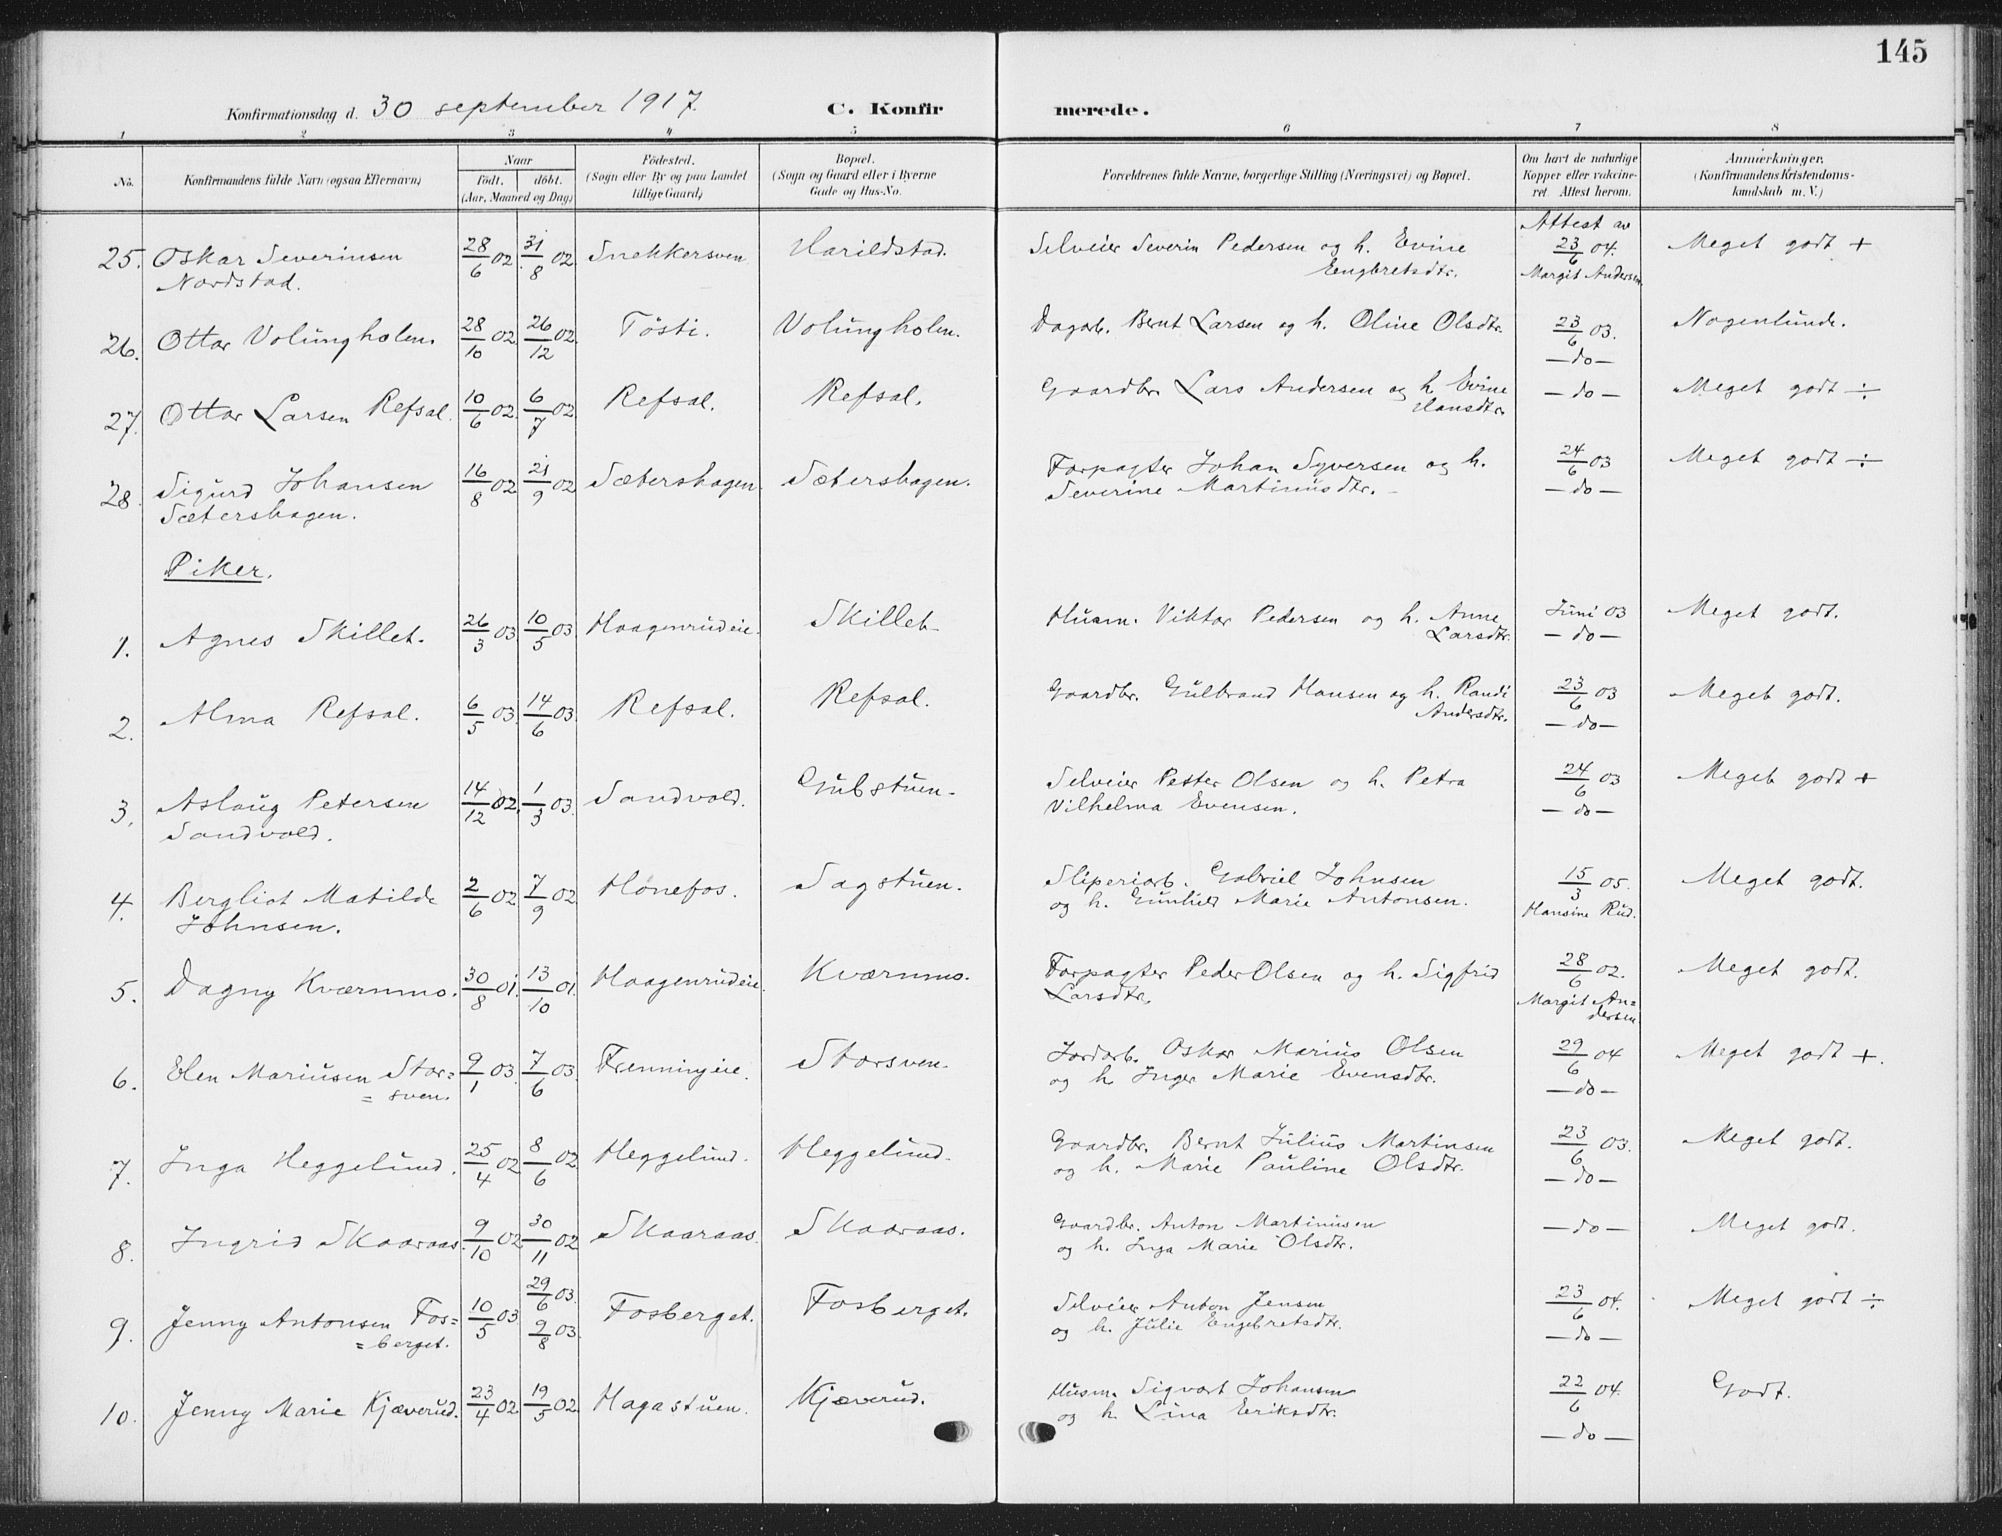 145
Konfirmationsdag d. 30 september 1917. C. Konfir merede.
1 2 3 4 5 6 7 8
No. Konfirmandens fulde Navn (ogsaa Efternavn) Naar Födt. döbt. (Aar, Maaned og Dag) Födested. (Sogn eller By og paa Landet tillige Gaard) Bopæl. (Sogn og Gaard eller i Byerne Gade og Hus-No. Forældrenes fulde Navne, borgerlige Stilling (Næringsvei) og Bopæl. Om havt de naturlige Kopper eller vaccineret. Attest herom. Anmærkninger. (Konfirmandens Kristendomskundskab m. V.)
25. Oskar Severinsen 28/6 02 31/8 02 Snekkersven Harildstad. Selveier Severin Pedersen og h. Evine Attest av 23/6 04. Meget godt +
Nordstad. Engbretsdtr. Margit Andersen
26. Ottar Volungholen. 28/10 02 26/12 02 Tösti. Volungholen. Dagarb. Bernt Larsen og h. Oline Olsdtr. 23/6 03. Nogenlunde.
—do—
27. Ottar Larsen Refsal. 10/6 02 6/7 02 Refsal. Refsal. Gaardbr. Lars Andersen og h. Evine —do— Meget godt ÷
Hansdtr.
28. Sigurd Johansen 16/8 02 21/9 02 Sætershagen Sætershagen. Forpagter Johan Syversen og h. 24/6 03 Meget godt ÷
Sætershagen. Severine Martinusdtr. —do—
Piker.
1. Agnes Skillet. 26/3 03 10/5 03 Haagenrudeie. Skillet Husm. Viktor Pedersen og h. Anne Juni 03 Meget godt.
Larsdtr. —do—
2. Alma Refsal. 6/5 03. 14/6 03. Refsal. Refsal. Gaardbr. Gulbrand Hansen og h. Randi 23/6 03 Meget godt.
Andersdtr. —do—
3. Aslaug Petersen 14/12 02. 1/3 03. Sandvold. Gubstuen. Selveier Petter Olsen og h. Petra 24/6 03 Meget godt +
Sandvold. Vilhelma Evensen. —do—
4. Bergliot Matilde 2/6 02 7/9 02 Hönefos. Sagstuen. Sliperiarb. Gabriel Johnsen 15/3 05. Meget godt.
Johnsen. og h. Gunhild Marie Antonsen. Hansine Rud.
5. Dagny Kværnmo. 30/8 01. 13/10 01. Haagenrudeie. Kværnmo. Forpagter Peder Olsen og h. Sigfrid 28/6 02. Meget godt.
Larsdtr. Margit An=
dersen
6. Elen Mariusen Stor= 9/1 03. 7/6 03. Frenningeie. Storsven. Jordarb. Oskar Marius Olsen 29/6 04 Meget godt +.
= sven. og h. Inger Marie Evensdtr. —do—
7. Inga Heggelund. 25/4 02 8/6 02. Heggelund. Heggelund. Gaardbr. Bernt Julius Martinsen 23/6 03. Meget godt.
og h. Marie Pauline Olsdtr. —do—
8. Ingrid Skaaraas. 9/10 02 30/11 02 Skaaraas. Skaaraas. Gaardbr. Anton Martinusen —do— Meget godt.
og h. Inga Marie Olsdtr.
9. Jenny Antonsen Fos= 10/5 03 29/6 03. 9/8 03. Fosberget. Fosberget. Selveier Anton Jensen 23/6 04. Meget godt ÷
=berget. og h. Julie Engebretsdtr. —do—
10. Jenny Marie Kjæverud. 23/4 02 19/5 02 Hagastuen. Kjæverud. Husm. Sigvart Johansen 22/6 04. Godt.
og h. Lina Eriksdtr. —do—